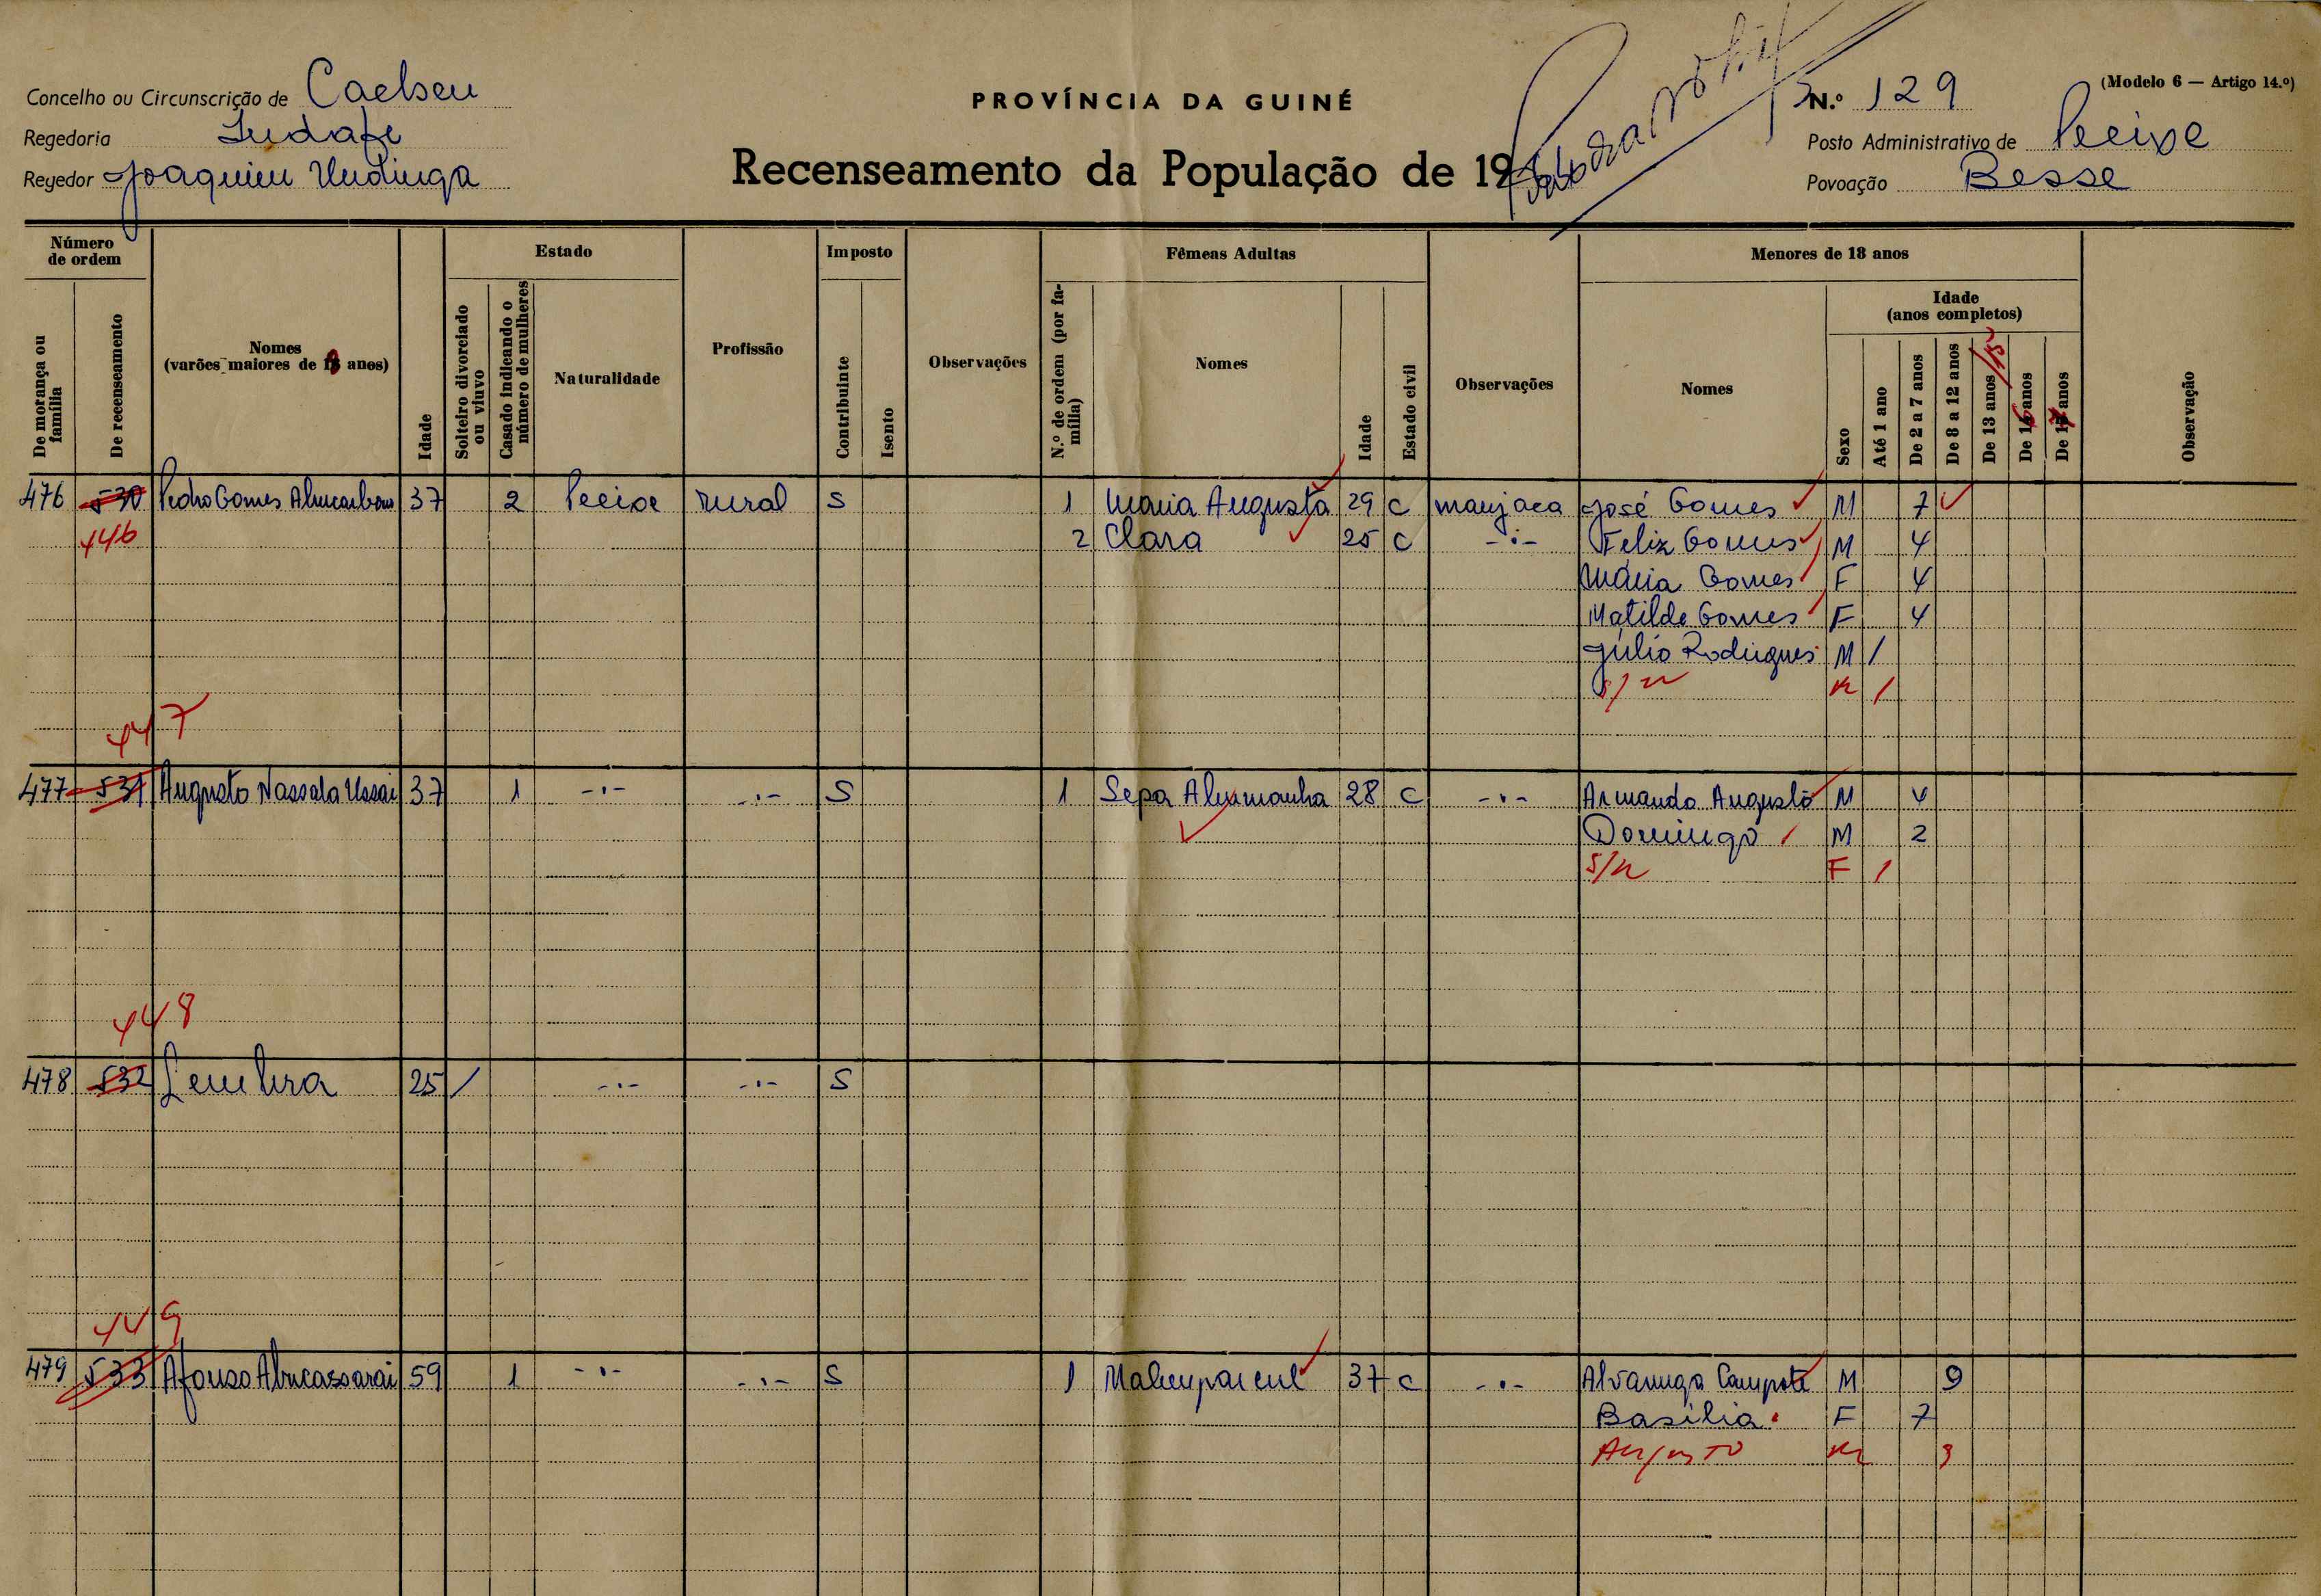 (Modelo 6 — Artigo 14.º)
Concelho ou Circunscrição de
PROVÍNCIA DA GUINÉ
N.º 129
Regedoria
Posto Administrativo de Pecixe
Regedor Joaquim
Recenseamento da População de 19
Povoação Besse
Número de ordem
De morança ou família
De recenseamento
Nomes
(varões maiores de 18 anos)
Idade
Estado
Solteiro divorciado ou viuvo
Casado indicando o número de mulheres
Naturalidade
Profissão
Imposto
Contribuinte
Isento
Observações
Fêmeas Adultas
N.º de ordem (por família)
Nomes
Idade
Estado civil
Observações
Menores de 18 anos
Nomes
Idade
(anos completos)
Sexo
Até 1 ano
De 2 a 7 anos
De 8 a 12 anos
De 13 anos /15
De 16 anos
De 17 anos
Observação
476 530 Pedro Gomes 37 2 Pecixe rural S 1 Maria Augusta 29 C manjaca José Gomes M 7
446 2 Clara 25 C -·- Feliz Gomes M 4
Maria Gomes F 4
Matilde Gomes F 4
Júlio Rodrigues M /
s/n M /
447
477 531 Augusto Nassala Ussai 37 1 -·- -·- S 1 Sepa 28 C -·- Armando Augusto M 4
Domingo M 2
S/n F /
448
478 532 Lembra 25 / -·- -·- S
449
479 533 Afonso 59 1 -·- -·- S 1 37 C -·- M 9
Basilia F 7
Augusto M 9